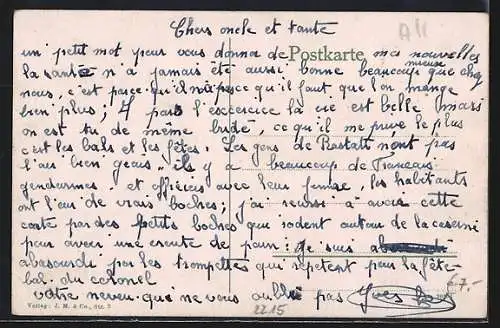 Chers oncle et tante
un petit mot pour vous donner de Postkarte mes nouvelles
la santé n'a jamais été aussi bonne beaucoup mieux que chez
nous, c'est parce qu'il n'a pas ce qu'il faut, que l'on mange
bien plus; à part l'exercice la vie est belle mais
on est tu de même bridé, ce qu'il me prive le plus
c'est les bals et les fêtes. Les gens de Rastatt n'ont pas
l'air bien gais, ils y a beaucoup de Francais
gendarmes et officiers avec leur famille, les habitants
ont l'air de vrais boches, j'ai reussi à avoir cette
carte par des petits boches qui rodent autour de la caserne
pour avoir une croute de pain: je suis
abasourdi par les trompettes qui répetent pour la fête
bal du colonel
votre neveu qui ne vous oublie pas Yves
Verlag: J. M. & Co., Str. 2
2215
67,-